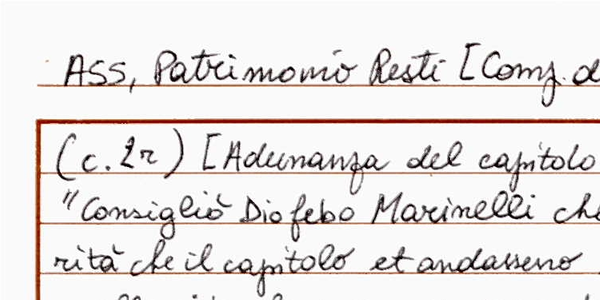 ASS, Patrimonio Resti [Comp. d
(c. 2r) [Adunanza del capitolo
"Consigliò Diofebo Marinelli che
rità che il capitolo et andasseno